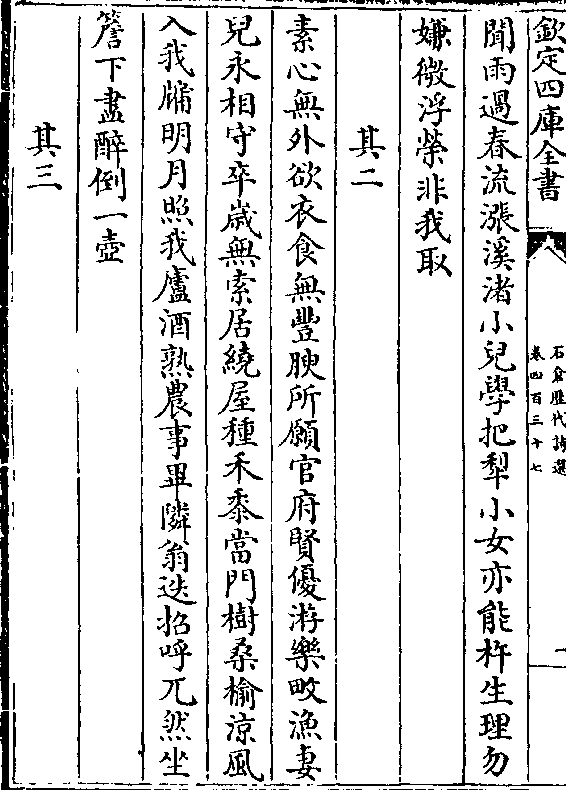 欽定四庫全書
石倉歷代詩選
卷四百三十七
聞雨過春流漲溪渚小兒學把犁小女亦能杵生理勿
嫌微浮榮非我取
其二
素心無外欲衣食無豐腴所願官府賢優游樂畋漁妻
兒永相守卒歲無索居繞屋種禾黍當門樹桑榆涼風
入我牖明月照我廬酒熟農事畢隣翁迭招呼兀然坐
簷下盡醉倒一壺
其三